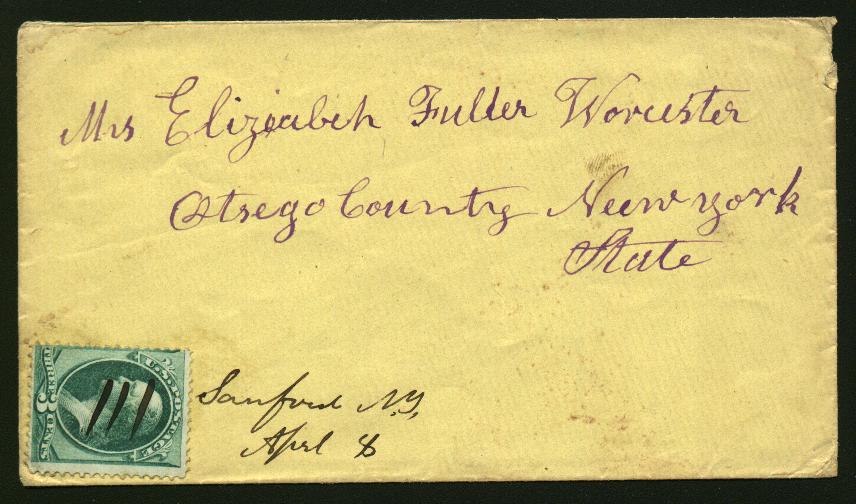 Mrs Elizeabeh Fuller Worcester
Otsego County New york
State
U.S. POSTAGE
THREE 3 CENTS
Sanford N.Y.
Aprl 8